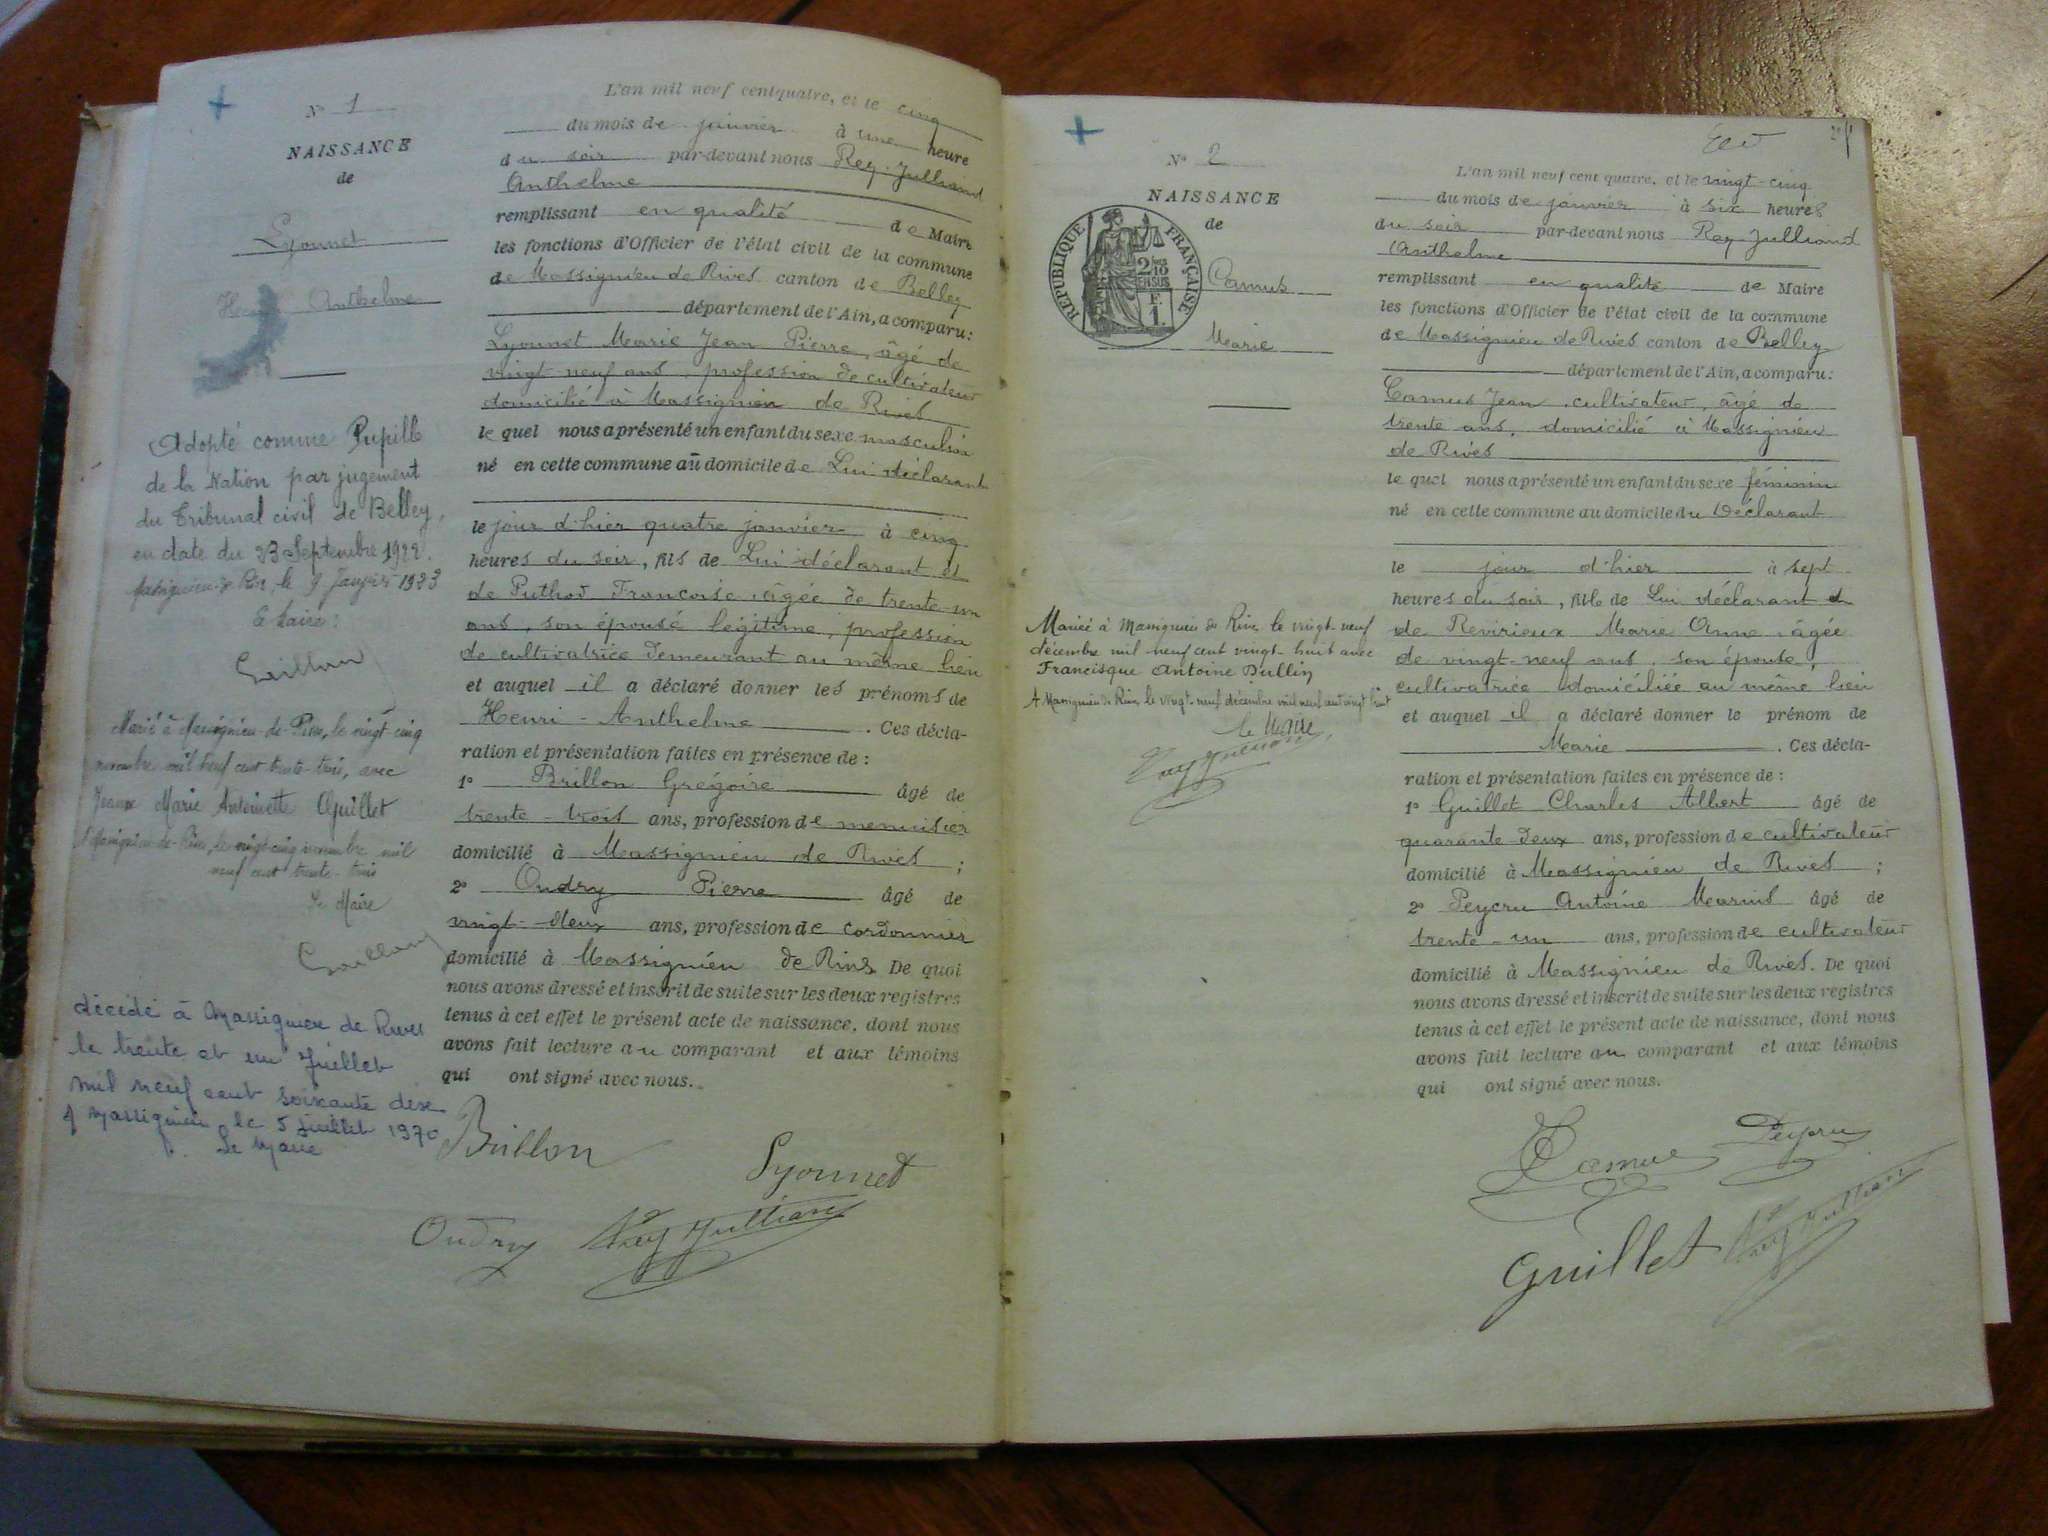 N° 1
NAISSANCE
de
Lyonnet
Henri Anthelme
Adopté comme Pupille
de la Nation par jugement
du Tribunal civil de Belley,
en date du 23 Septembre 1922.
Massignieu-de-Rives, le 9 Janvier 1923
Le Maire:
Marié à Massignieu-de-Rives, le vingt cinq
novembre mil neuf cent trente-trois, avec
Jeanne Marie Antoinette Guillet
A Massignieu-de-Rives, le vingt cinq novembre mil
neuf cent trente-trois
Le Maire
décédé à Massignieu de Rives
le trente et un Juillet
mil neuf cent soixante dix
A Massignieu le 5 juillet 1970
Le Maire
L'an mil neuf cent quatre, et le cinq
du mois de janvier à une heure
du soir par-devant nous Rey-Julliand
Anthelme
remplissant en qualité de Maire
les fonctions d'Officier de l'état civil de la commune
de Massignieu de Rives canton de Belley
département de l'Ain, a comparu:
Lyonnet Marie Jean Pierre, âgé de
vingt-neuf ans, profession de cultivateur
domicilié à Massignieu de Rives
le quel nous a présenté un enfant du sexe masculin
né en cette commune au domicile de Lui déclarant
le jour d'hier quatre janvier à cinq
heures du soir, fils de Lui déclarant et
de Puthod Françoise âgée de trente-un
ans, son épouse légitime, profession
de cultivatrice demeurant au même lieu
et auquel il a déclaré donner les prénoms de
Henri-Anthelme. Ces décla-
ration et présentation faites en présence de:
1° Brillon Grégoire âgé de
trente-trois ans, profession de menuisier
domicilié à Massignieu de Rives;
2° Oudry Pierre âgé de
vingt-deux ans, profession de cordonnier
domicilié à Massignieu de Rives De quoi
nous avons dressé et inscrit de suite sur les deux registres
tenus à cet effet le présent acte de naissance, dont nous
avons fait lecture au comparant et aux témoins
qui ont signé avec nous.
Brillon
Lyonnet
Oudry Rey Julliand
N° 2
NAISSANCE
de
REPUBLIQUE FRANÇAISE
2/10
EN SUS
F.
1.
Camus
Marie
Mariée à Massignieu de Rives le vingt neuf
décembre mil neuf cent vingt-huit avec
Francisque Antoine Bullin
A Massignieu de Rives, le vingt-neuf décembre mil neuf cent vingt huit
le Maire
L'an mil neuf cent quatre, et le vingt-cinq
du mois de janvier à six heures
du soir par-devant nous Rey-Julliand
Anthelme
remplissant en qualité de Maire
les fonctions d'Officier de l'état civil de la commune
de Massignieu de Rives canton de Belley
département de l'Ain, a comparu:
Camus Jean, cultivateur, âgé de
trente ans, domicilié à Massignieu
de Rives
le quel nous a présenté un enfant du sexe féminin
né en cette commune au domicile du Déclarant
le jour d'hier à sept
heures du soir, fille de Lui déclarant et
de Revirieux Marie Anne, âgée
de vingt-neuf ans, son épouse,
cultivatrice domiciliée au même lieu
et auquel il a déclaré donner le prénom de
Marie. Ces décla-
ration et présentation faites en présence de:
1° Guillet Charles Albert âgé de
quarante deux ans, profession de cultivateur
domicilié à Massignieu de Rives;
2° Peycru Antoine Marius âgé de
trente-un ans, profession de cultivateur
domicilié à Massignieu de Rives. De quoi
nous avons dressé et inscrit de suite sur les deux registres
tenus à cet effet le présent acte de naissance, dont nous
avons fait lecture au comparant et aux témoins
qui ont signé avec nous.
Camus Peycru
Guillet Rey Julliand